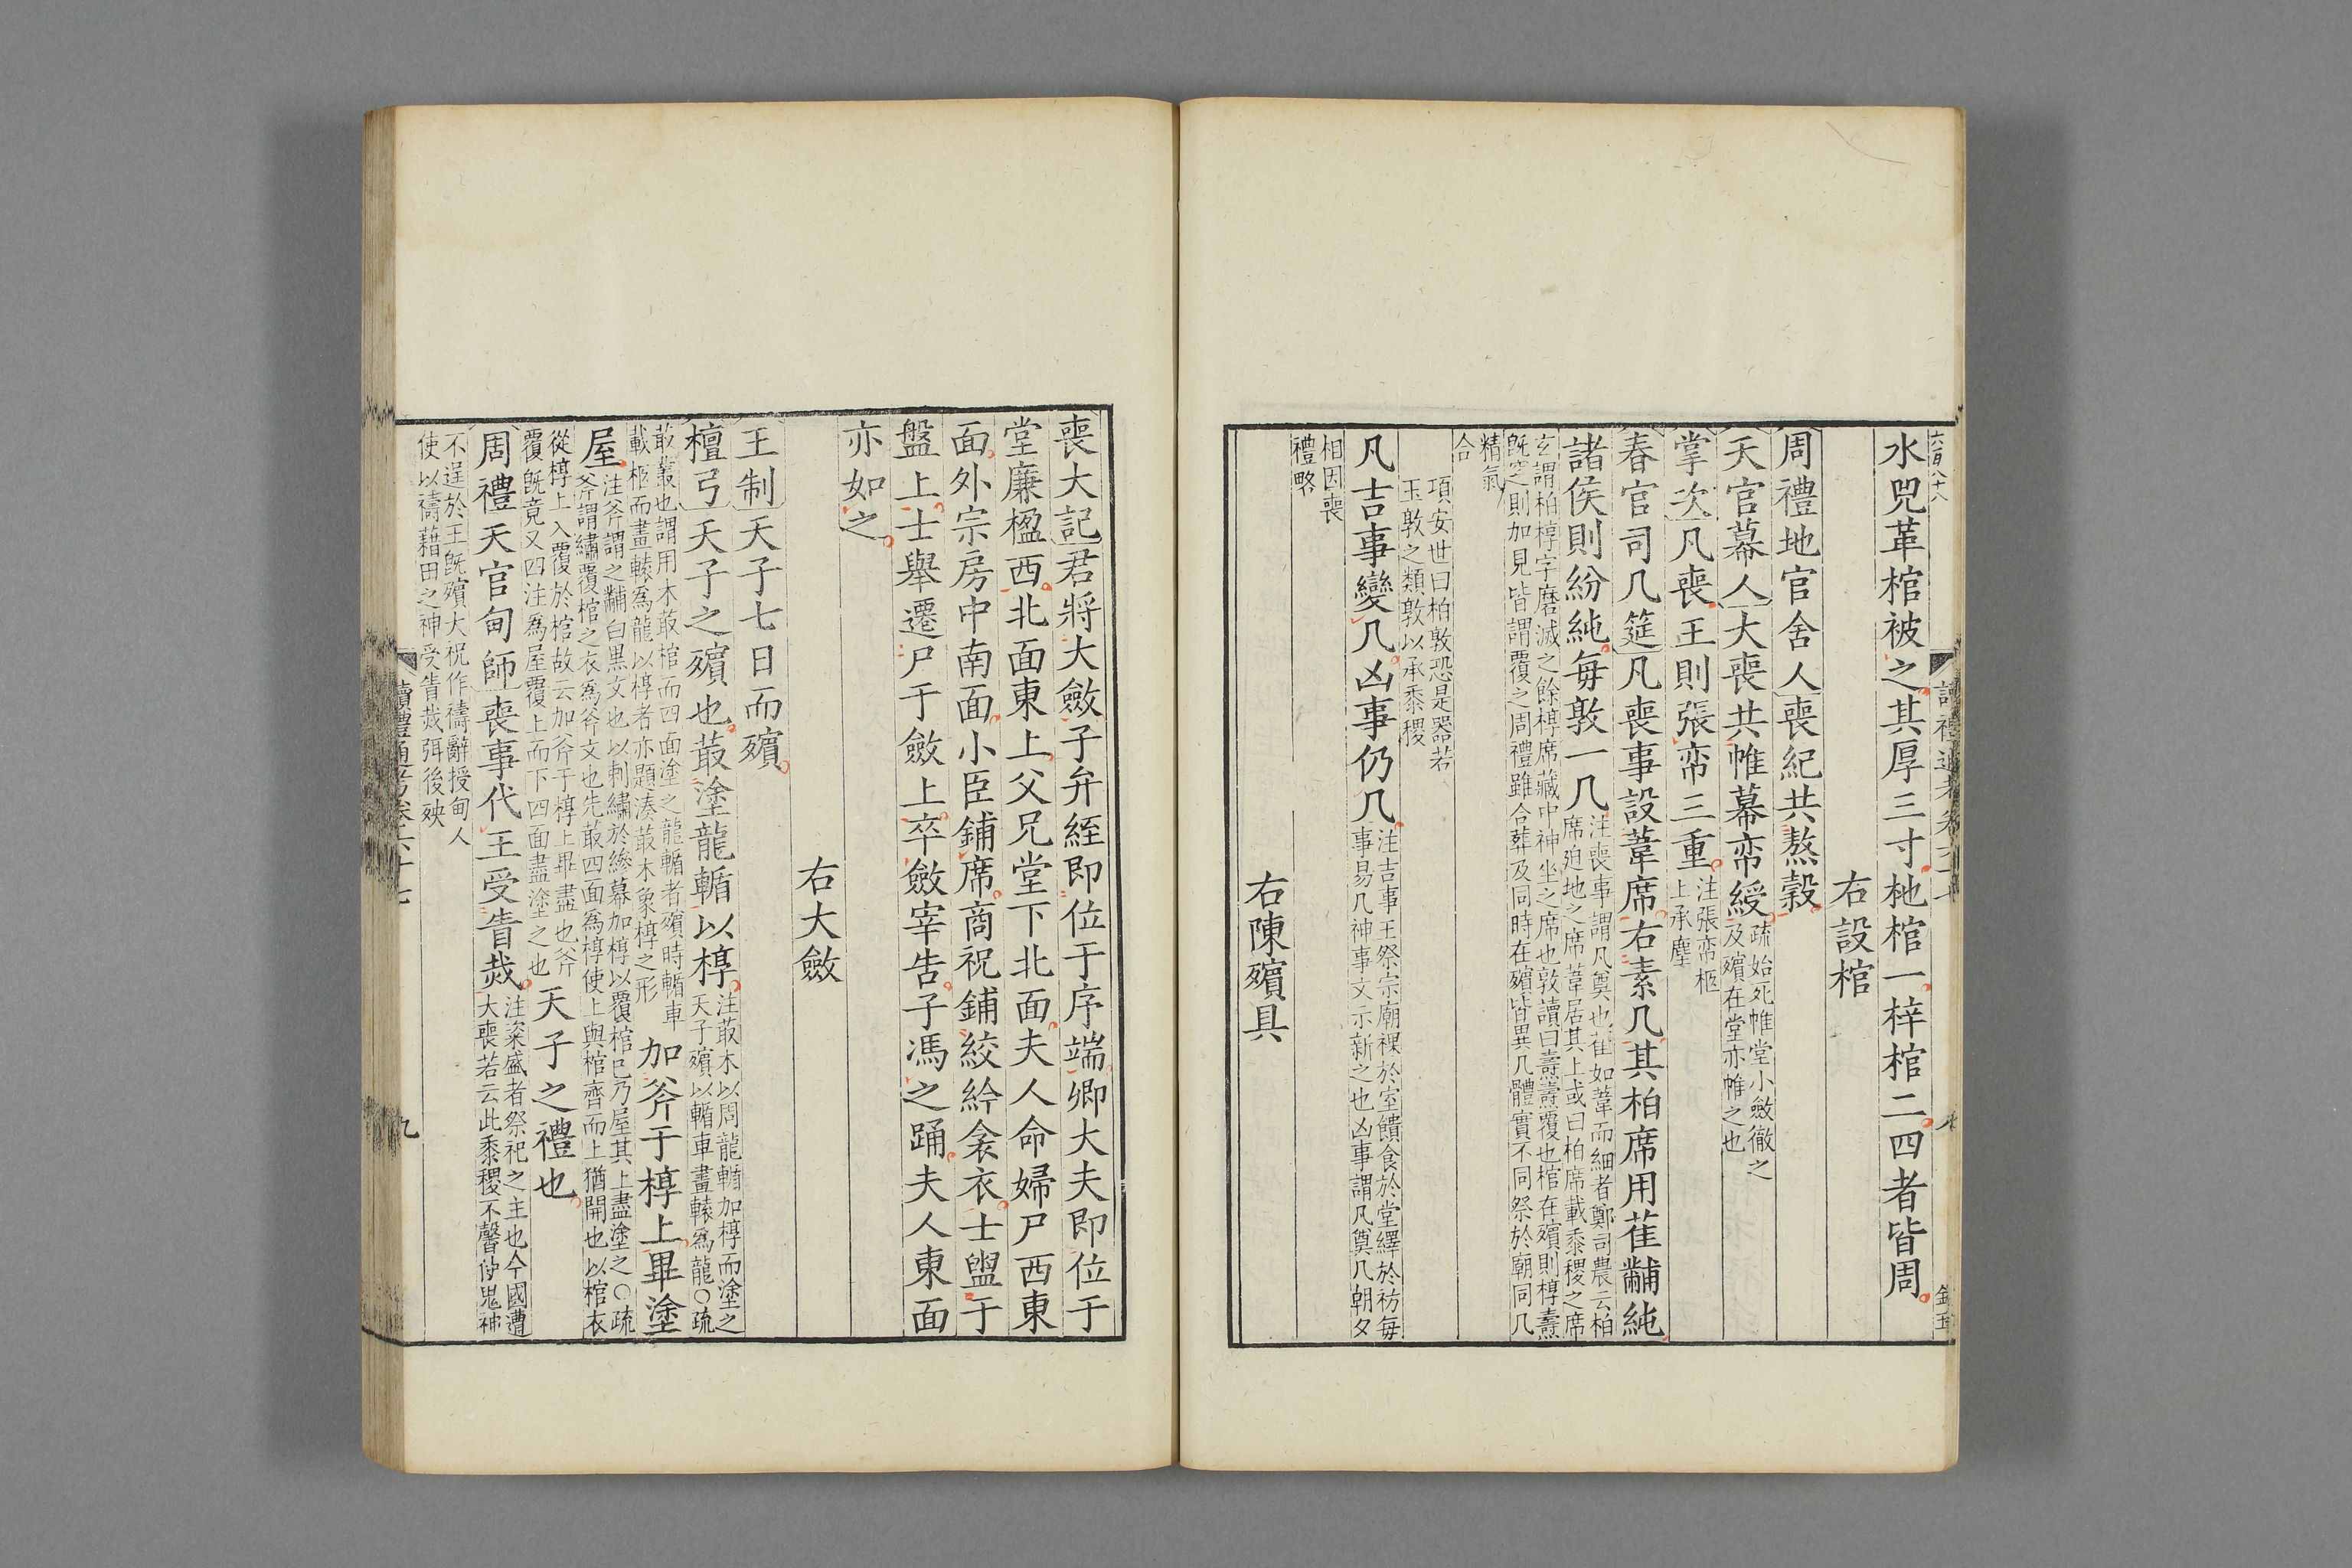 六百八十八
水兕革棺被之其厚三寸杝棺一梓棺二四者皆周
右設棺
周禮地官舍人喪紀共熬穀
天官幕人大喪共帷幕帟綬疏始死帷堂小斂徹之
及殯在堂亦帷之也
掌次凡喪王則張帟三重注張帟柩
上承塵
春官司几筵凡喪事設葦席右素几其柏席用萑黼純
諸侯則紛純每敦一几注喪事謂凡奠也萑如葦而細者鄭司農云柏
席迫地之席葦居其上或曰柏席載黍稷之席
玄謂柏椁字磨滅之餘椁席藏中神坐之席也敦讀曰燾燾覆也棺在殯則椁燾
既窆則加見皆謂覆之周禮雖合葬及同時在殯皆異几體實不同祭於廟同几
精氣
合
項安世曰柏敦恐是器若
玉敦之類敦以承黍稷
凡吉事變几凶事仍几注吉事王祭宗廟祼於室饋食於堂繹於祊每
事易几神事文示新之也凶事謂凡奠几朝夕
相因喪
禮略
右陳殯具
喪大記君將大斂子弁絰即位于序端卿大夫即位于
堂廉楹西北面東上父兄堂下北面夫人命婦尸西東
面外宗房中南面小臣鋪席商祝鋪絞紟衾衣士盥于
盤上士舉遷尸于斂上卒斂宰告子馮之踊夫人東面
亦如之
右大斂
王制天子七日而殯
檀弓天子之殯也菆塗龍輴以椁注菆木以周龍輴加椁而塗之
天子殯以輴車畫轅為龍○疏
菆叢也謂用木菆棺而四面塗之龍輴者殯時輴車
載柩而畫轅為龍以椁者亦題湊菆木象椁之形
加斧于椁上畢塗
屋注斧謂之黼白黑文也以刺繡於縿幕加椁以覆棺已乃屋其上盡塗之○疏
斧謂繡覆棺之衣為斧文也先菆四面為椁使上與棺齊而上猶開也以棺衣
從椁上入覆於棺故云加斧于椁上畢盡也斧
覆既竟又四注為屋覆上而下四面盡塗之也
天子之禮也
周禮天官甸師喪事代王受眚烖注粢盛者祭祀之主也今國遭
大喪若云此黍稷不馨使鬼神
不逞於王既殯大祝作禱辭授甸人
使以禱藉田之神受眚烖弭後殃
讀禮通考卷六十七
九